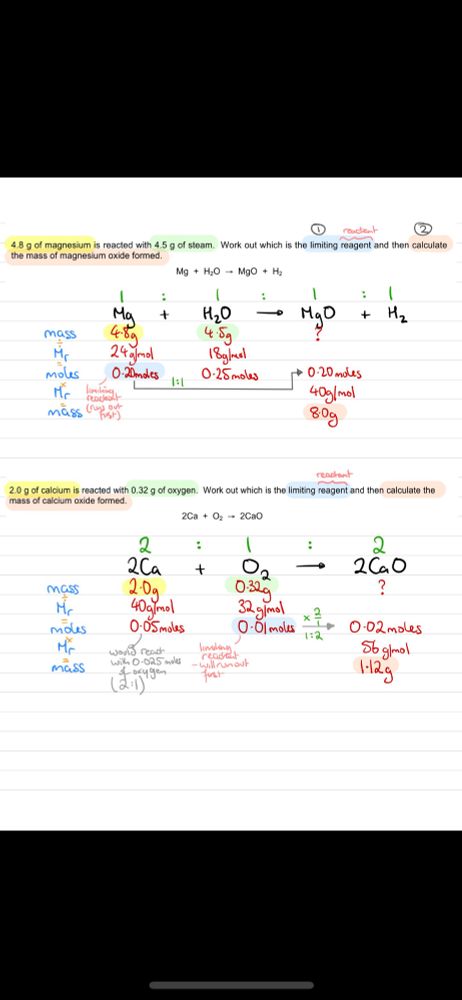 ① reactant ②
4.8 g of magnesium is reacted with 4.5 g of steam. Work out which is the limiting reagent and then calculate
the mass of magnesium oxide formed.
Mg + H₂O → MgO + H₂
1 : 1 : 1 : 1
Mg + H₂O → MgO + H₂
mass 4.8g 4.5g ?
÷
Mr 24g/mol 18g/mol
=
moles 0.20moles 0.25moles 0.20moles
1:1
×
Mr limiting reactant (runs out first) 40g/mol
=
mass 8.0g
reactant
2.0 g of calcium is reacted with 0.32 g of oxygen. Work out which is the limiting reagent and then calculate the
mass of calcium oxide formed.
2Ca + O₂ → 2CaO
2 : 1 : 2
2Ca + O₂ → 2CaO
mass 2.0g 0.32g ?
÷
Mr 40g/mol 32g/mol
=
moles 0.05moles 0.01moles × 2/1 1:2 0.02moles
×
Mr 56g/mol
=
mass 1.12g
would react
with 0.025 moles
of oxygen
(2:1)
limiting
reactant
- will run out
first